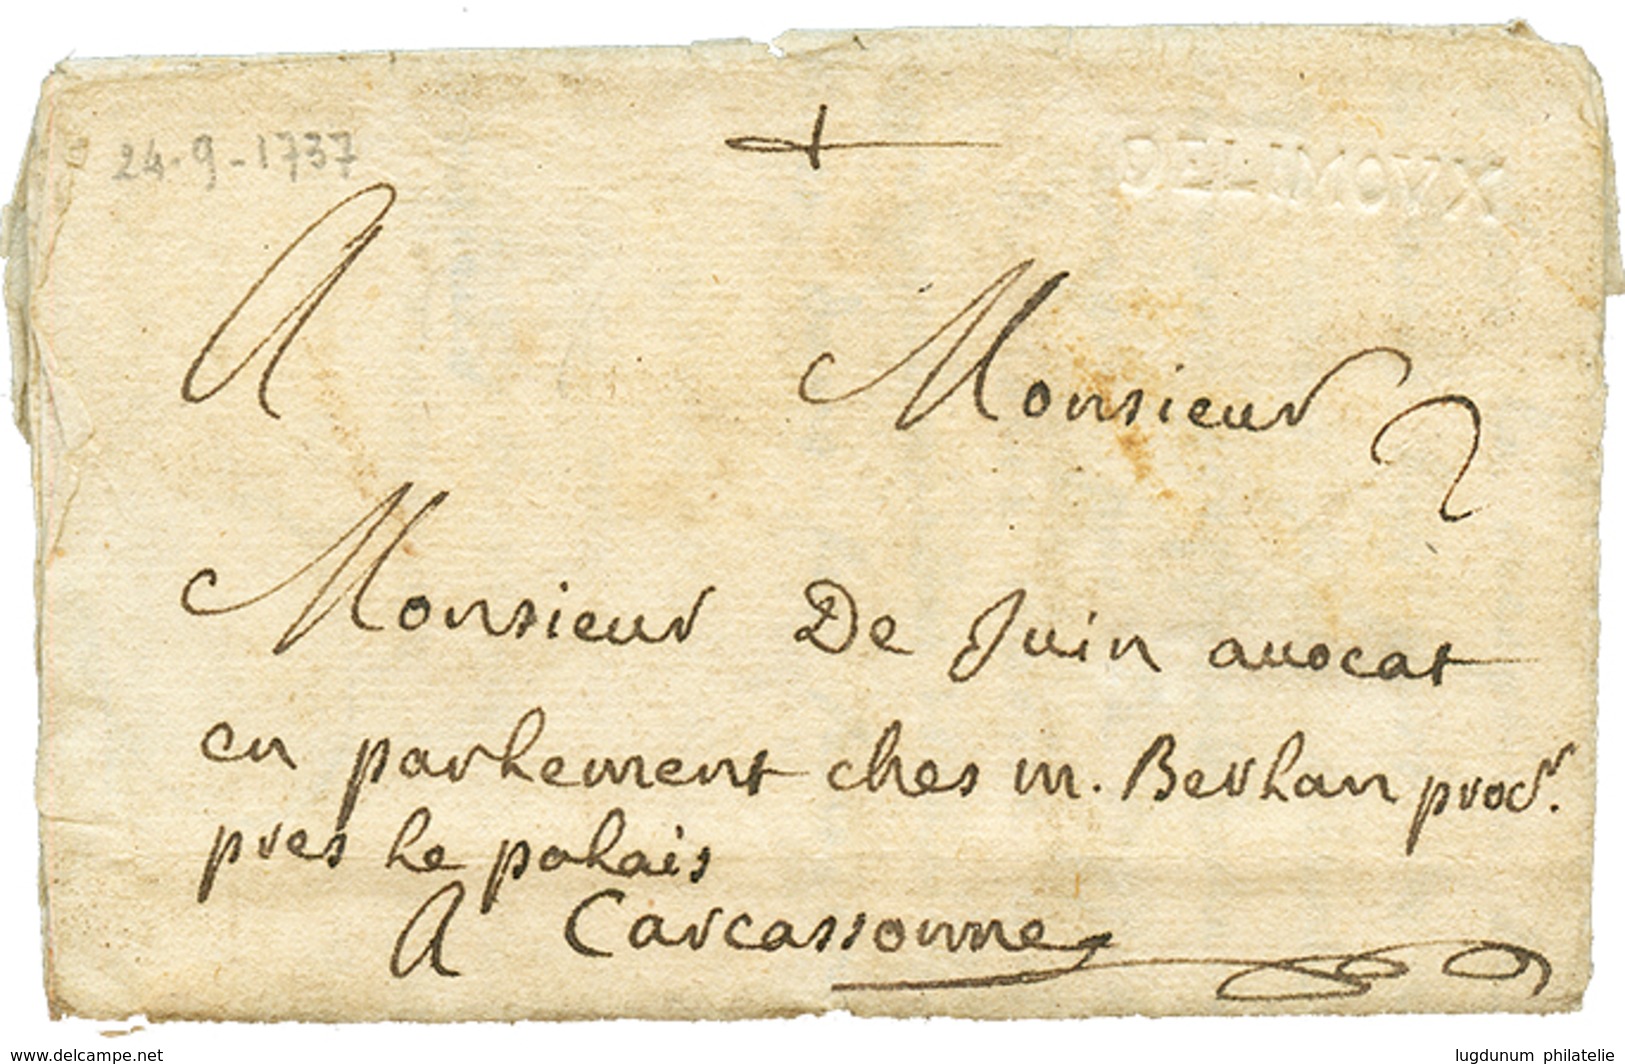 24-9-1737
DE LIMOVX
A Monsieur
2
Monsieur De Juin auocat
en parlement ches m. Berlan procr.
pres le palais
A Carcassonne
www.delcampe.net
lugdunum philatelie